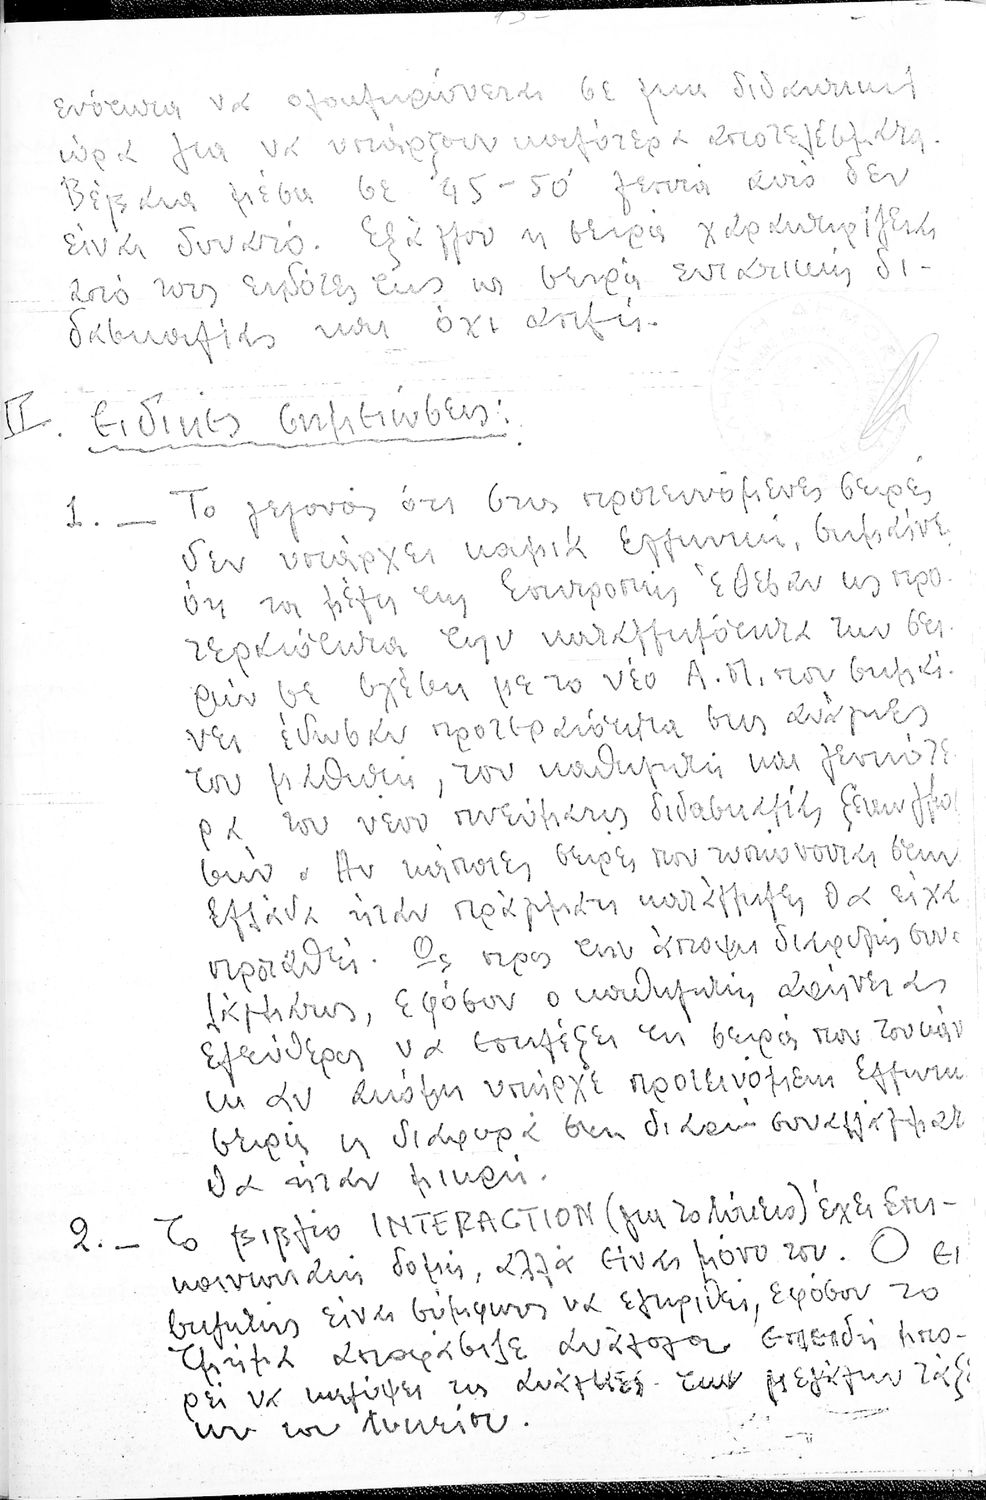 -13-
ενότητα να ολοκληρώνεται σε μια διδακτική
ώρα για να υπάρξουν καλύτερα αποτελέσματα.
Βέβαια μέσα σε 45-50' λεπτά αυτό δεν
είναι δυνατό. Εξάλλου η σειρά χαρακτηρίζεται
από τους εκδότες της ως σειρά εντατικής δι-
δασκαλίας και όχι απλή.
II. Ειδικές σημειώσεις:
1. — Το γεγονός ότι στις προτεινόμενες σειρές
δεν υπάρχει καμιά Ελληνική, σημαίνει
ότι τα μέλη της Επιτροπής έθεσαν ως προ-
τεραιότητα την καταλληλότητα των σει-
ρών σε σχέση με το νέο Α.Π. που σημαί-
νει έδωσαν προτεραιότητα στις ανάγκες
του μαθητή, του καθηγητή και γενικότε
ρα του νέου πνεύματος διδασκαλίας ξένων γλωσ
σών. Αν κάποιες σειρές που τυπώνονται στην
Ελλάδα ήταν πράγματι κατάλληλες θα είχα
προταθεί. Ως προς την άποψη διαρυής συνα
λάγματος, εφόσον ο καθηγητής αφήνεται
ελεύθερος να επιλέξει τη σειρά που του κάν
κι αν ακόμη υπήρχε προτεινόμενη Ελληνικ
σειρά η διαφορά στη διαρροή συναλλάγματ
θα ήταν μικρή.
2. — Το βιβλίο INTERACTION (για το Λύκειο) έχει Επι-
κοινωνιακή δομή, αλλά είναι μόνο του. Ο ει
σηγητής είναι σύμφωνος να εγκριθεί, εφόσον το
Τμήμα αποφάσισε ανάλογα επειδή μπο-
ρεί να καλύψει τις ανάγκες των μεγάλων τάξε
ων του Λυκείου.